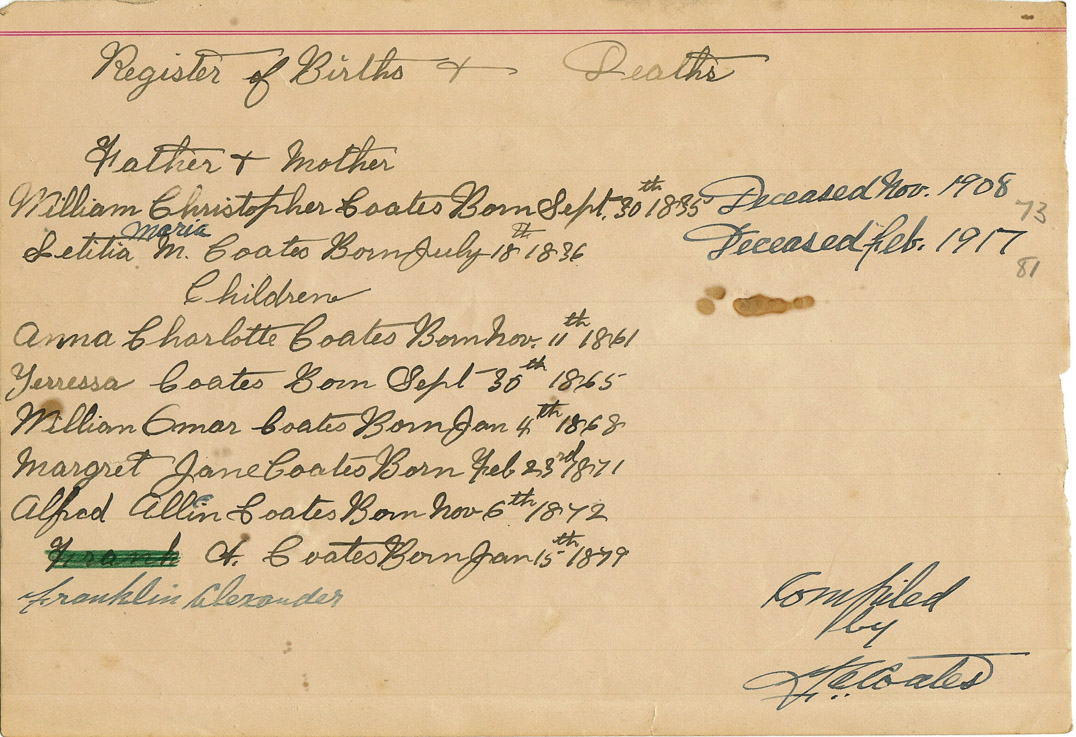 Register of Births + Deaths
Father + Mother
William Christopher Coates Born Sept. 30th 1835 Deceased Nov. 1908
73
Maria
Letitia M. Coates Born July 18th 1836 Deceased Feb. 1917
81
Children
Anna Charlotte Coates Born Nov. 11th 1861
Yerressa Coates Born Sept 30th 1865
William Omar Coates Born Jan 4th 1868
Margret Jane Coates Born Feb 23rd 1871
Alfred Allin Coates Born Nov 6th 1872
Frank A. Coates Born Jan 15th 1879
Franklin Alexander
Compiled
by
Coates